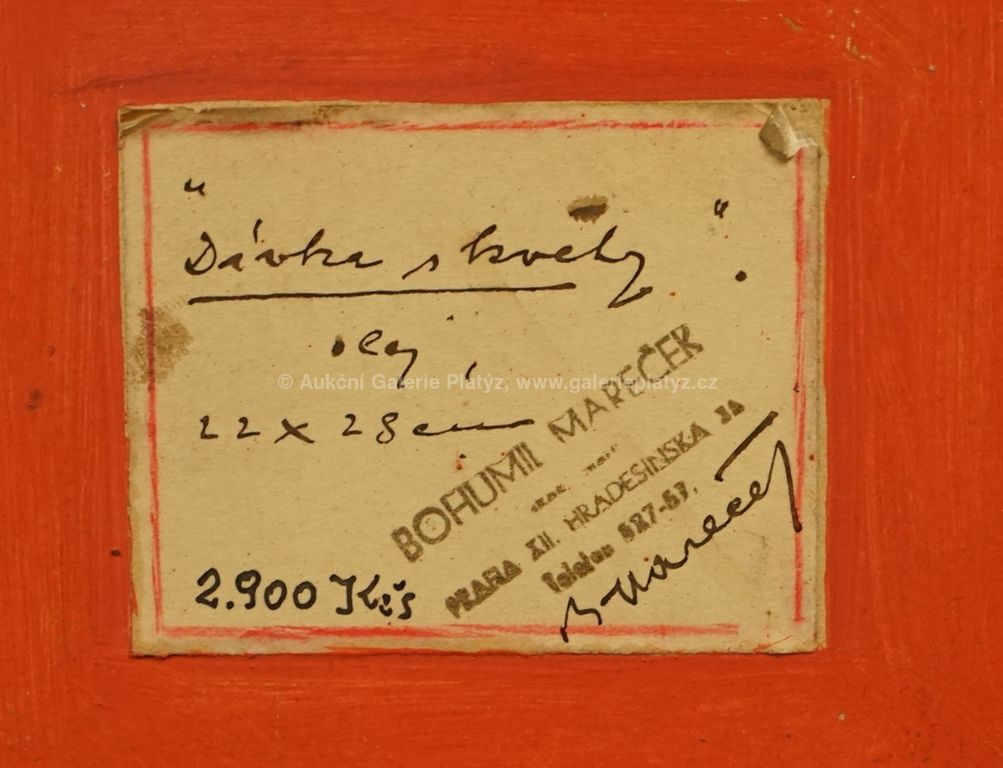 "Dívka s květy".
olej,
22 x 28 cm
2.900 Kčs
BOHUMIL MAREČEK
PRAHA XII. HRADESINSKA 36
Telefon 527-57.
B Mareček
© Aukční Galerie Platýz, www.galerieplatyz.cz